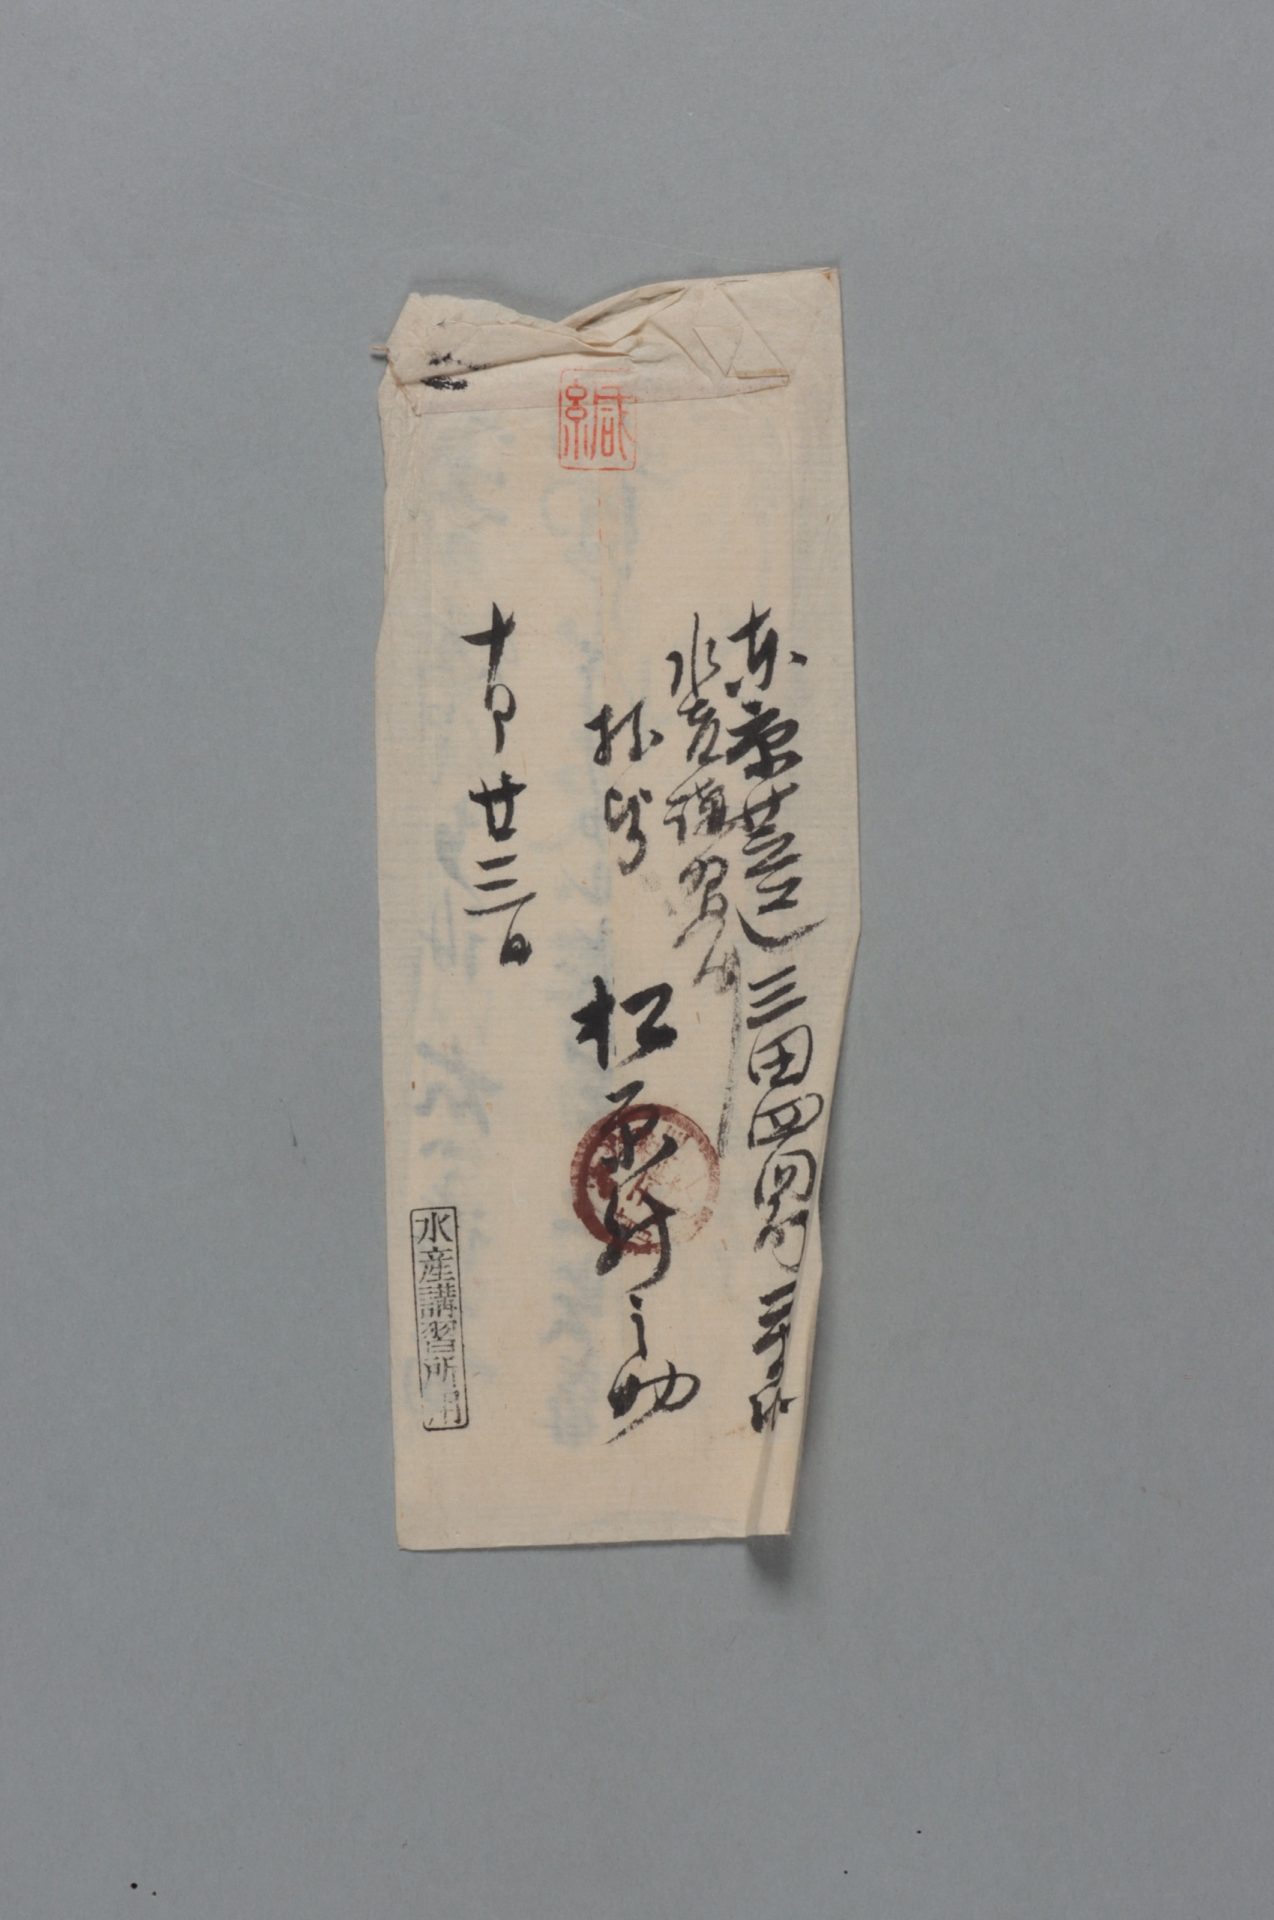 緘
東京芝区三田四国町
水産講習所
松原新之助
十月廿三日
水産講習所用